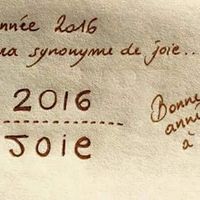 nnée 2016
ra synonyme de joie...
2016
Joie
Bonne
anné
à